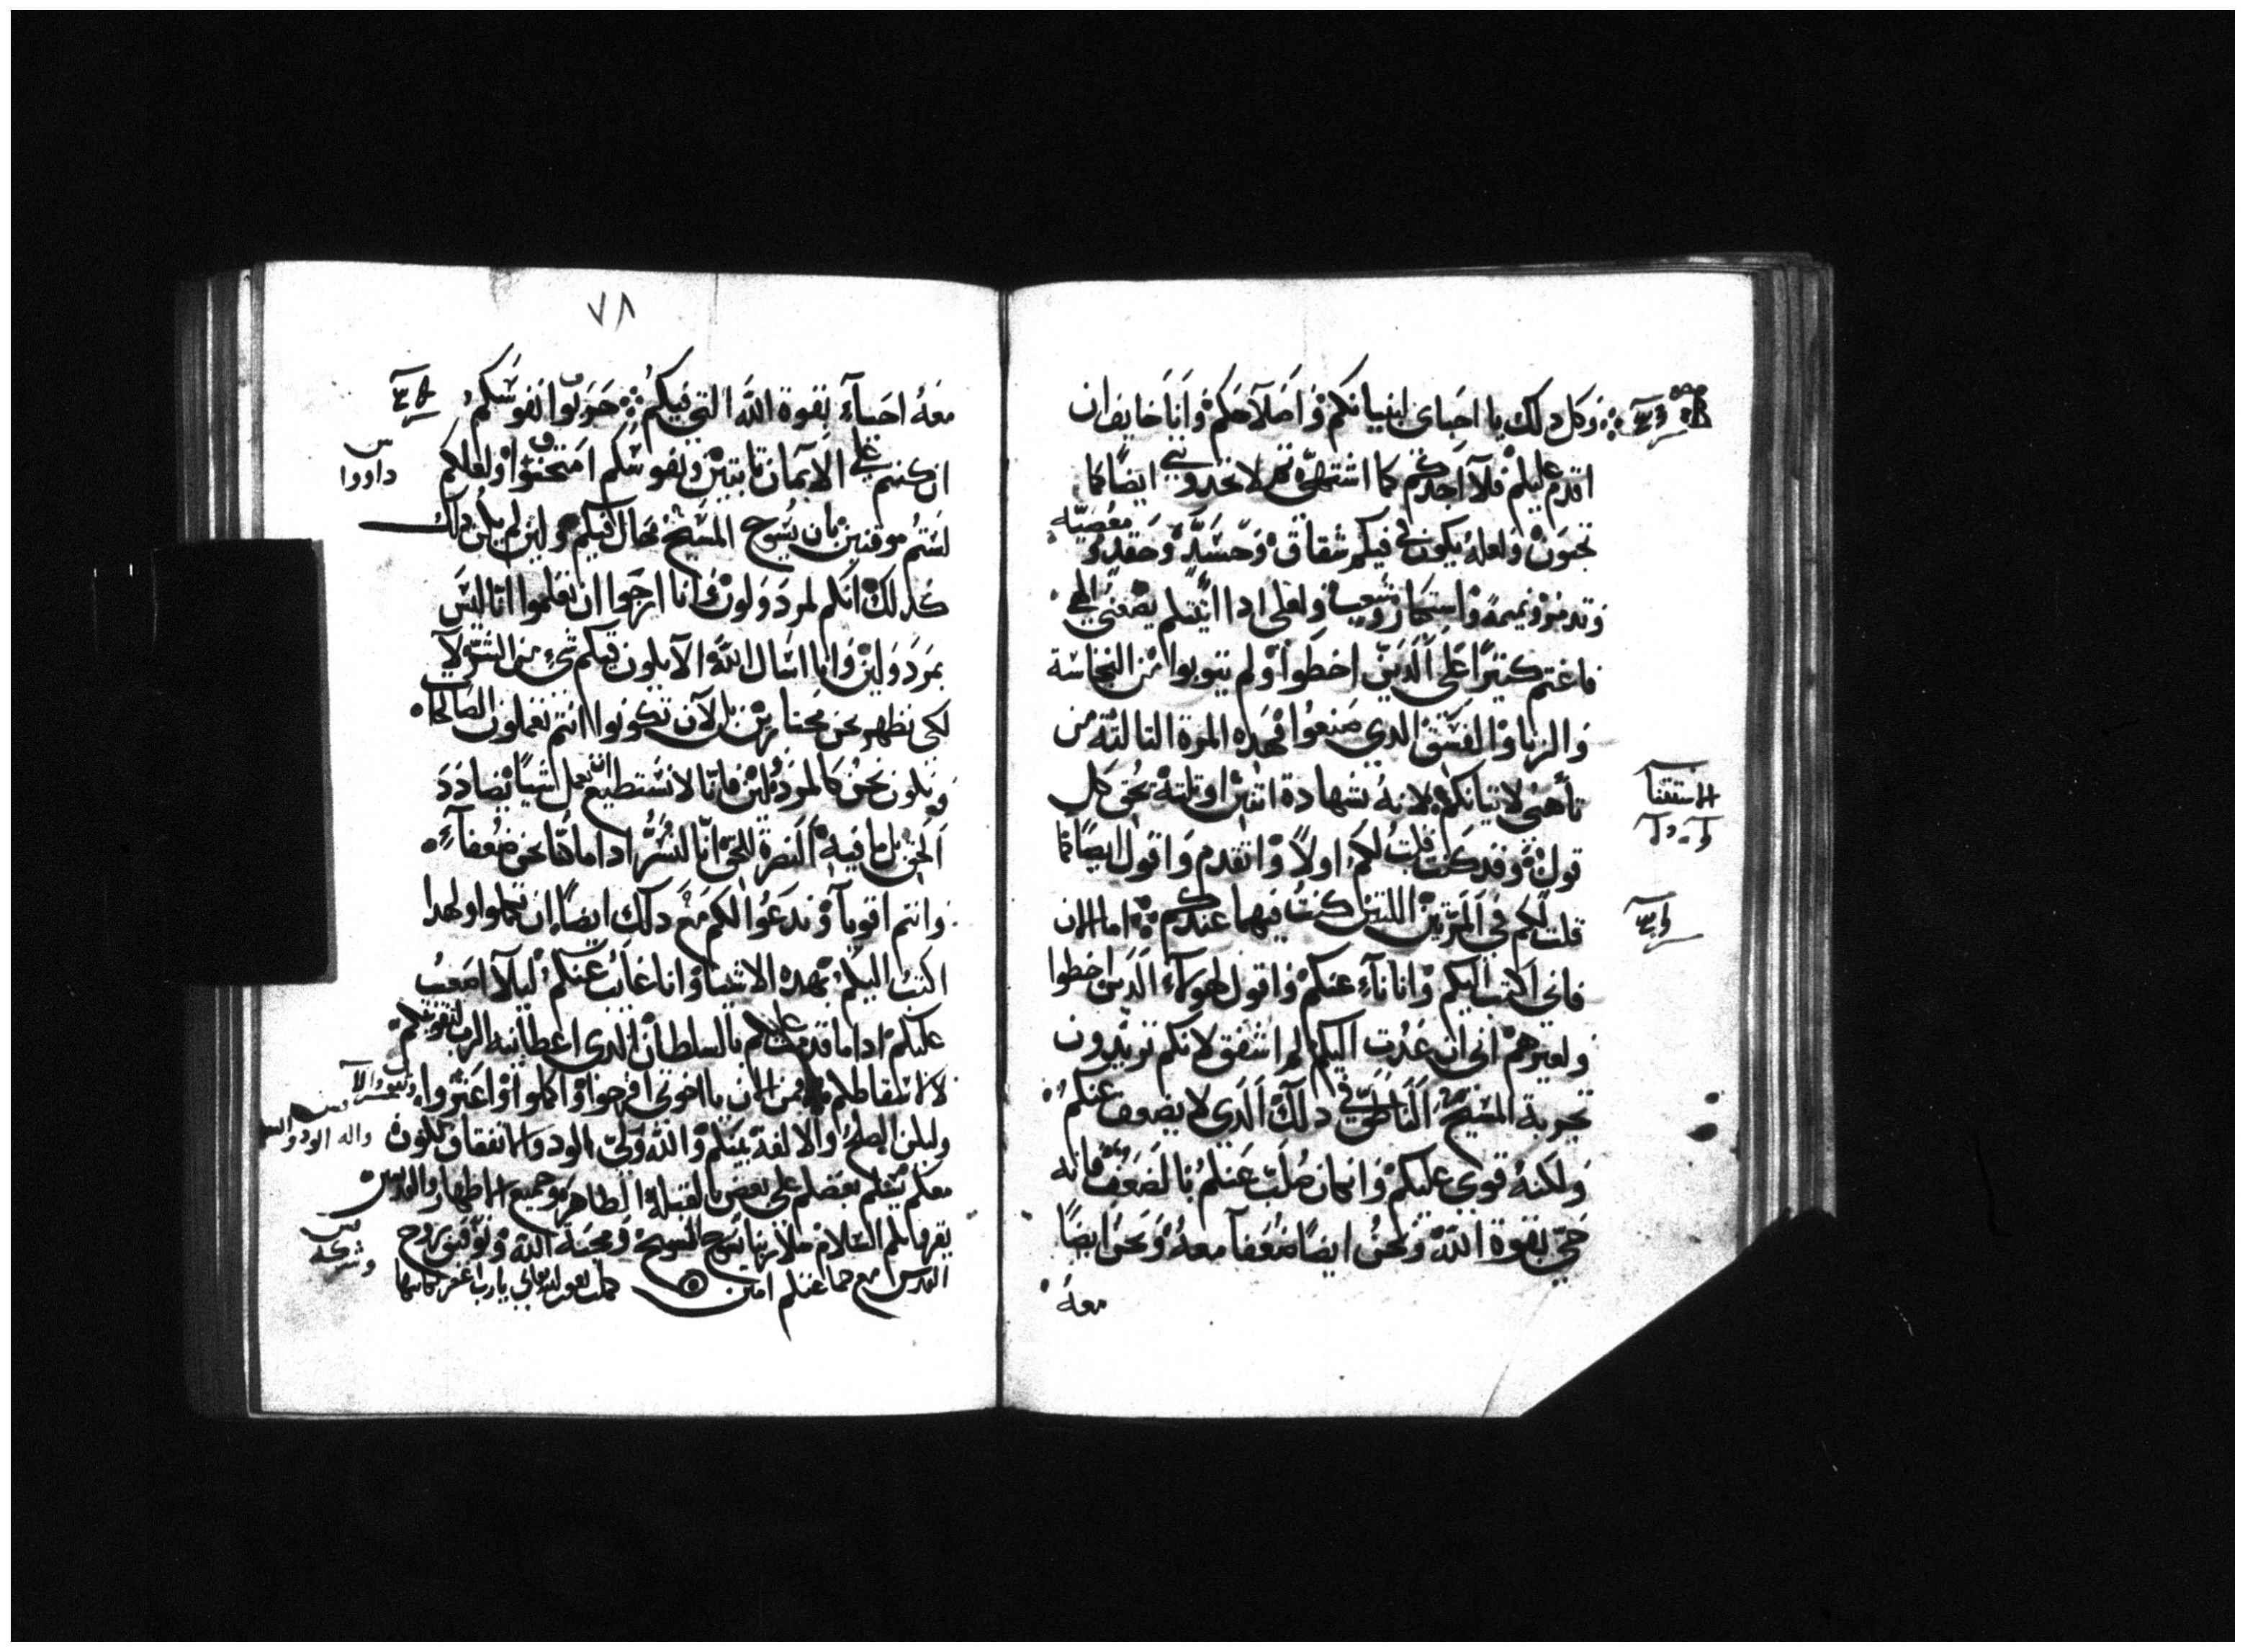 وكل دلك يا احباي لبنيانكم واصلاحكم وانا خايف ان
اقدم عليكم فلا اجدكم كما اشتهي ثم لا تجدوني ايضا كما
تحبون ولعله يكون فيكم شقاق وحسد وحقد و معصيه
وتدمر ونميمة واستكبار وشعب ولعلي ادا اتيتكم يضعني الهي
فاغتم كثيرا على الدين اخطوا ولم يتوبوا من النجاسة
والزنا والفسق الدي صنعوا فهده المرة التالتة من
تأهبي لاتيانكم لانه بشهادة اثنين او تلتة يحق كل
قول وقد كنت قلت لكم اولا واتقدم واقول ايضا كما
قلت لكم في المرتين اللتين كنت فيهما عندكم اما الان
فاني اكتب اليكم وانا ناء عنكم واقول لهولاء الدين اخطوا
ولغيرهم اني ان عدت اليكم لم اشفق لانكم تريدون
تجربة المسيح الناطق في دلك الدي لا يضعف عنكم
ولكنه قوي عليكم وانكان صلب عنكم بالضعف فانه
حي بقوة الله ونحن ايضا ضعفا معه ونحن ايضا
معه
الاستثنا
٧٨
معه احياء بقوة الله التي فيكم جربوا نفوسكم
ان كنتم على الايمان تابتين ونفوسكم امتحنوا ولعلكم
داووا
لستم موقنين بان يسوع المسيح حال فيكم ولين لم يكن دلك
كدلك انكم لمردولون وانا ارجوا ان تعلموا انا ليس
بمردولين وانا اسال الله الا يكون فيكم شي من الشر لا
لكي نظهر نحن مختارين بل لان تكونوا انتم تعملون الصالحات
ونكون نحن كالمردولين فانا لا نستطيع ان نعمل شيا يضادد
الحق بل ما فيه النصرة للحق انا لنسر ادا ما كنا نحن ضعفاء
وانتم اقويا وندعوا لكم مع دلك ايضا ان تكملوا ولهدا
اكتب اليكم بهده الاشيا وانا غايب عنكم ليلا اصعب
عليكم ادا ما قدمت عليكم بالسلطان الدي اعطانيه الرب لتقويتكم
لا لاسقاطكم فمن الان يا اخوتي افرحوا واكملوا واعتزوا
وليكن الصلح والالفة بينكم والله ولي الود والاتفاق يكون
معكم يسلم بعضكم على بعض بالقبلة الطاهرة وجميع الاطهار والقديسين
يقرونكم السلام سلام ربنا يسوع المسيح ومحبة الله وتوفيق روح
وشركة
القدس مع جماعتكم امين كملت بعون الله تعالى يا رب اغفر لكاتبها